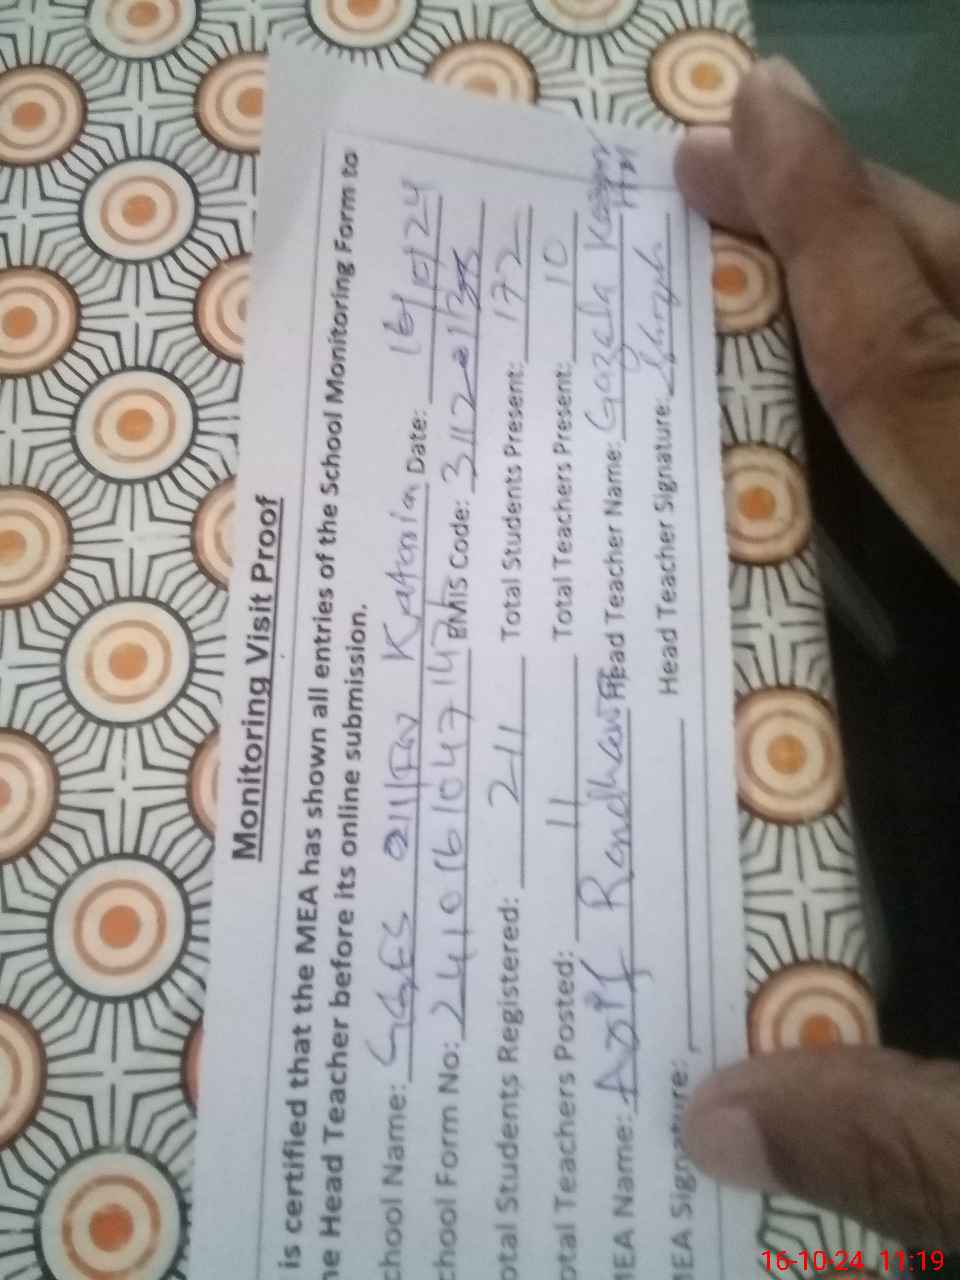 Monitoring Visit Proof
is certified that the MEA has shown all entries of the School Monitoring Form to
he Head Teacher before its online submission.
chool Name: GGES 211/EV Date: 16/10/24
chool Form No: EMIS Code:
otal Students Registered: 211 Total Students Present: 172
otal Teachers Posted: 11 Total Teachers Present: 10
MEA Name: Asif Randhawa Head Teacher Name: Gazela
MEA Signature: Head Teacher Signature:
16-10-24 11:19